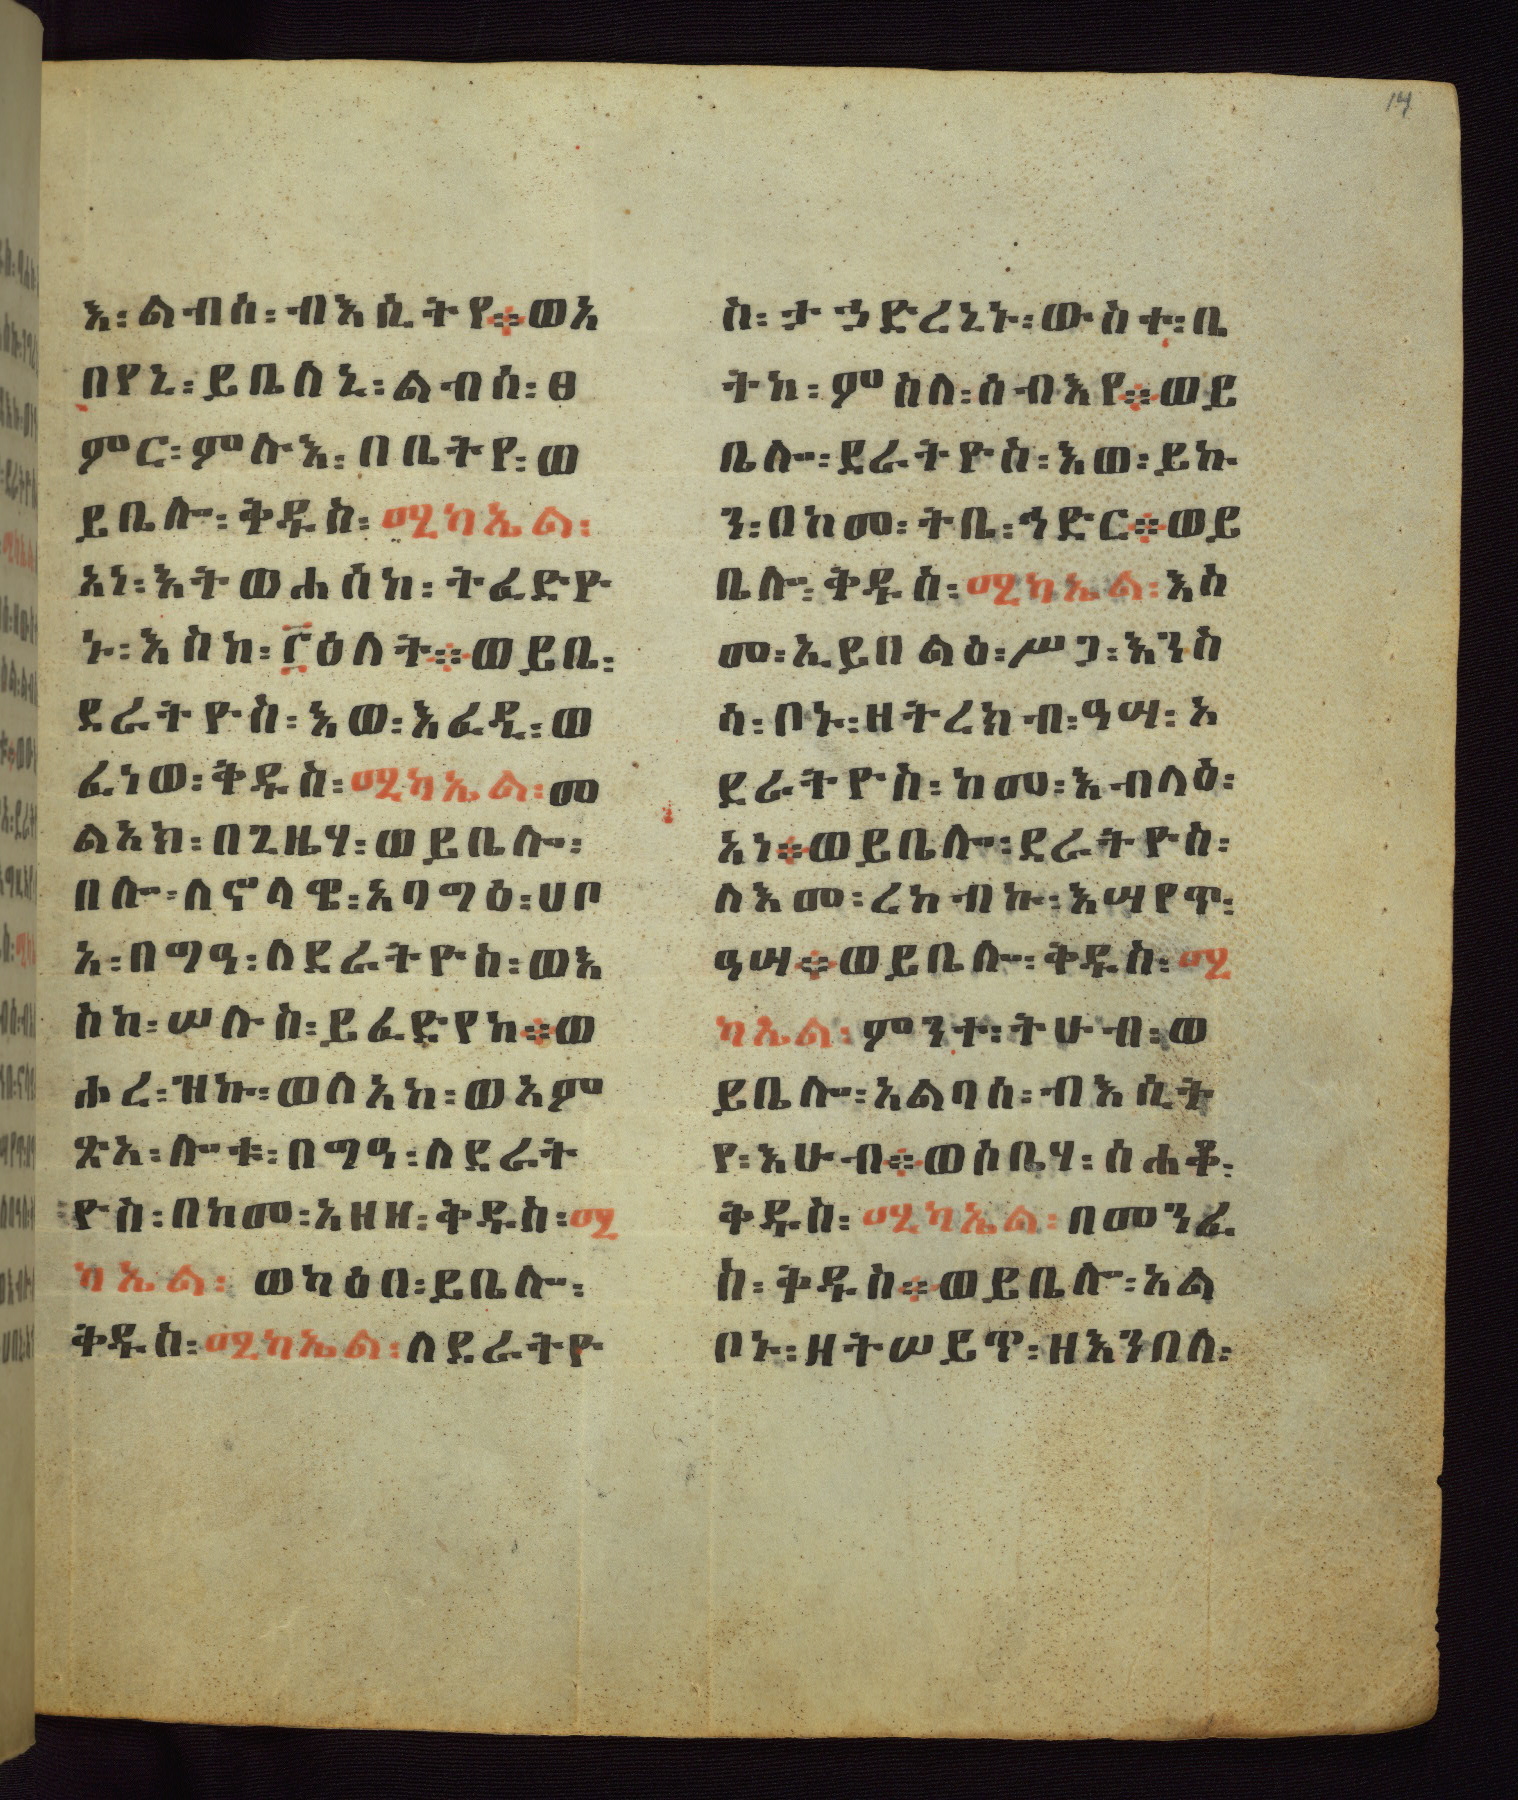 14
እ፡ልብሰ፡ብእሲትየ፨ወአ
በየኒ፡ይቤለኒ፡ልብሰ፡ፀ
ምር፡ምሉእ፡በቤትየ፡ወ
ይቤሎ፡ቅዱስ፡ሚካኤል፡
አነ፡እትወሐሰከ፡ትፈድዮ
ኑ፡እስከ፡፫ዕለት፨ወይቤ፡
ደራትዮስ፡እወ፡እፈዲ፡ወ
ፈነወ፡ቅዱስ፡ሚካኤል፡መ
ልአከ፡በጊዜሃ፡ወይቤሎ፡
በሎ፡ለኖላዌ፡አባግዕ፡ሀቦ
አ፡በግዓ፡ለደራትዮስ፡ወእ
ስከ፡ሠሉስ፡ይፈድየከ፨ወ
ሖረ፡ዝኩ፡ወለአከ፡ወአም
ጽአ፡ሎቱ፡በግዓ፡ለደራት
ዮስ፡በከመ፡አዘዘ፡ቅዱስ፡ሚ
ካኤል፡ወካዕበ፡ይቤሎ፡
ቅዱስ፡ሚካኤል፡ለደራትዮ
ስ፡ታኃድረኒኑ፡ውስተ፡ቤ
ትከ፡ምስለ፡ሰብእየ፨ወይ
ቤሎ፡ደራትዮስ፡እወ፡ይኩ
ን፡በከመ፡ትቤ፡ኅድር፨ወይ
ቤሎ፡ቅዱስ፡ሚካኤል፡እስ
መ፡ኢይበልዕ፡ሥጋ፡እንስ
ሳ፡ቦኑ፡ዘትረክብ፡ዓሣ፡አ
ደራትዮስ፡ከመ፡እብላዕ፡
አነ፨ወይቤሎ፡ደራትዮስ፡
ለእመ፡ረከብኩ፡እሣየጥ፡
ዓሣ፨ወይቤሎ፡ቅዱስ፡ሚ
ካኤል፡ምንተ፡ትሁብ፡ወ
ይቤሎ፡አልባሰ፡ብእሲት
የ፡እሁብ፨ወሰቤሃ፡ሰሐቆ፡
ቅዱስ፡ሚካኤል፡በመንፈ
ስ፡ቅዱስ፨ወይቤሎ፡አል
ቦኑ፡ዘትሠይጥ፡ዘእንበለ፡